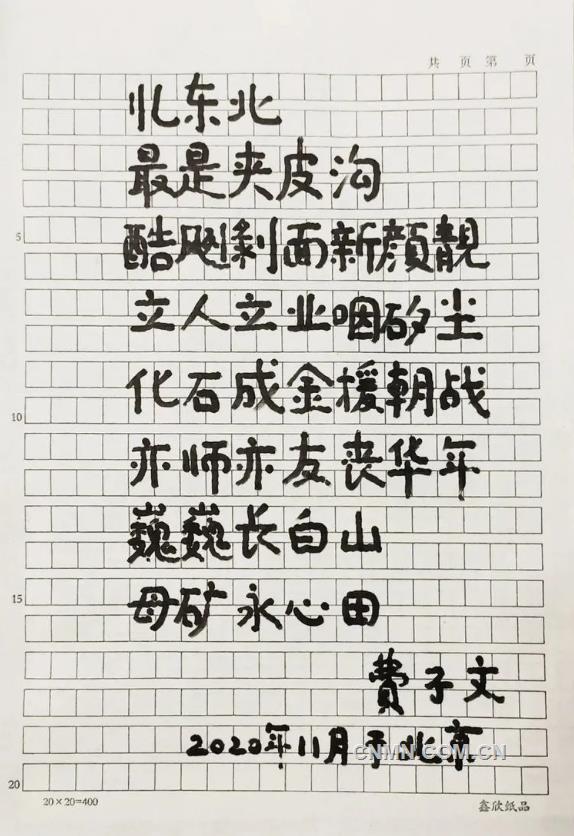 共 页 第 页
忆东北
最是夹皮沟
5
酷飚剃面新颜靓
立人立业咽矽尘
化石成金援朝战
10
亦师亦友丧华年
巍巍长白山
15
母矿永心田
費子文
2020年11月于北京
CNMN.COM.CN
20
20×20=400
鑫欣纸品